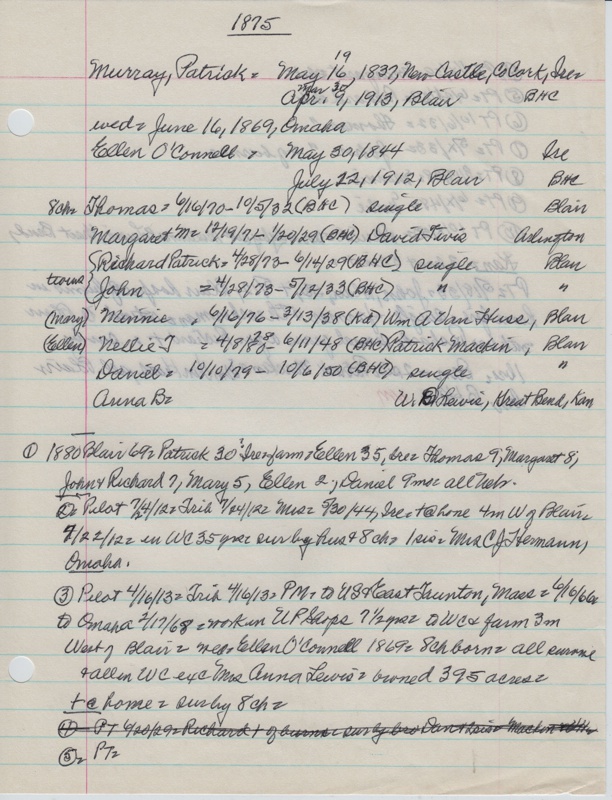 1875
19
Murray, Patrick = May 16, 1837, New Castle, Co Cork, Ire=
Mar 30
Apr. 9, 1913, Blair BHC
wed = June 16, 1869, Omaha
Ellen O'Connell = May 30, 1844 Ire
July 22, 1912, Blair BHC
8ch= Thomas = 6/16/70 - 10/5/32 (BHC) single Blair
Margaret M = 12/19/71 - 1/20/29 (BHC) David Tivis Arlington
{Richard Patrick = 4/28/73 - 6/14/29 (BHC) single Blair
twins {John = 4/28/73 - 5/12/33 (BHC) " "
(Mary) Minnie = 6/16/76 - 3/13/38 (Kd) Wm A Van Huss, Blair
(Ellen) Nellie T = 4/8/80 78 - 6/11/48 (BHC) Patrick Mackin, Blair
Daniel = 10/10/79 - 10/6/50 (BHC) single "
Anna B= W. B Lewis, Great Bend, Kan
① 1880 Blair 69 = Patrick 30? Ire = farm = Ellen 35, Ire = Thomas 9, Margaret 8,
John & Richard 7, Mary 5, Ellen 2, Daniel 9mo = all Nebr.
② = Pilot 7/24/12 = Trib 7/24/12 = Mrs = 5/30/44, Ire = + @ home 4m W of Blair =
7/22/12 = in WC 35 yrs = sur by hus & 8ch = 1 sis = Mrs C J Hermann,
Omaha.
③ Pilot 4/16/13 = Trib 4/16/13 = PM = to US & East Trunton, Mass = 6/6/66
to Omaha 2/17/68 = work in UP Shops 7½ yrs = to WC & farm 3m
West of Blair = wed Ellen O'Connell 1869 = 8ch born = all survive
& all in WC exc Mrs Anna Lewis = owned 395 acres =
+ @ home = sur by 8ch =
④ = PT 6/20/29 = Richard + of burns = sur by bro Dan & sis = Mackin
⑤ = PT=